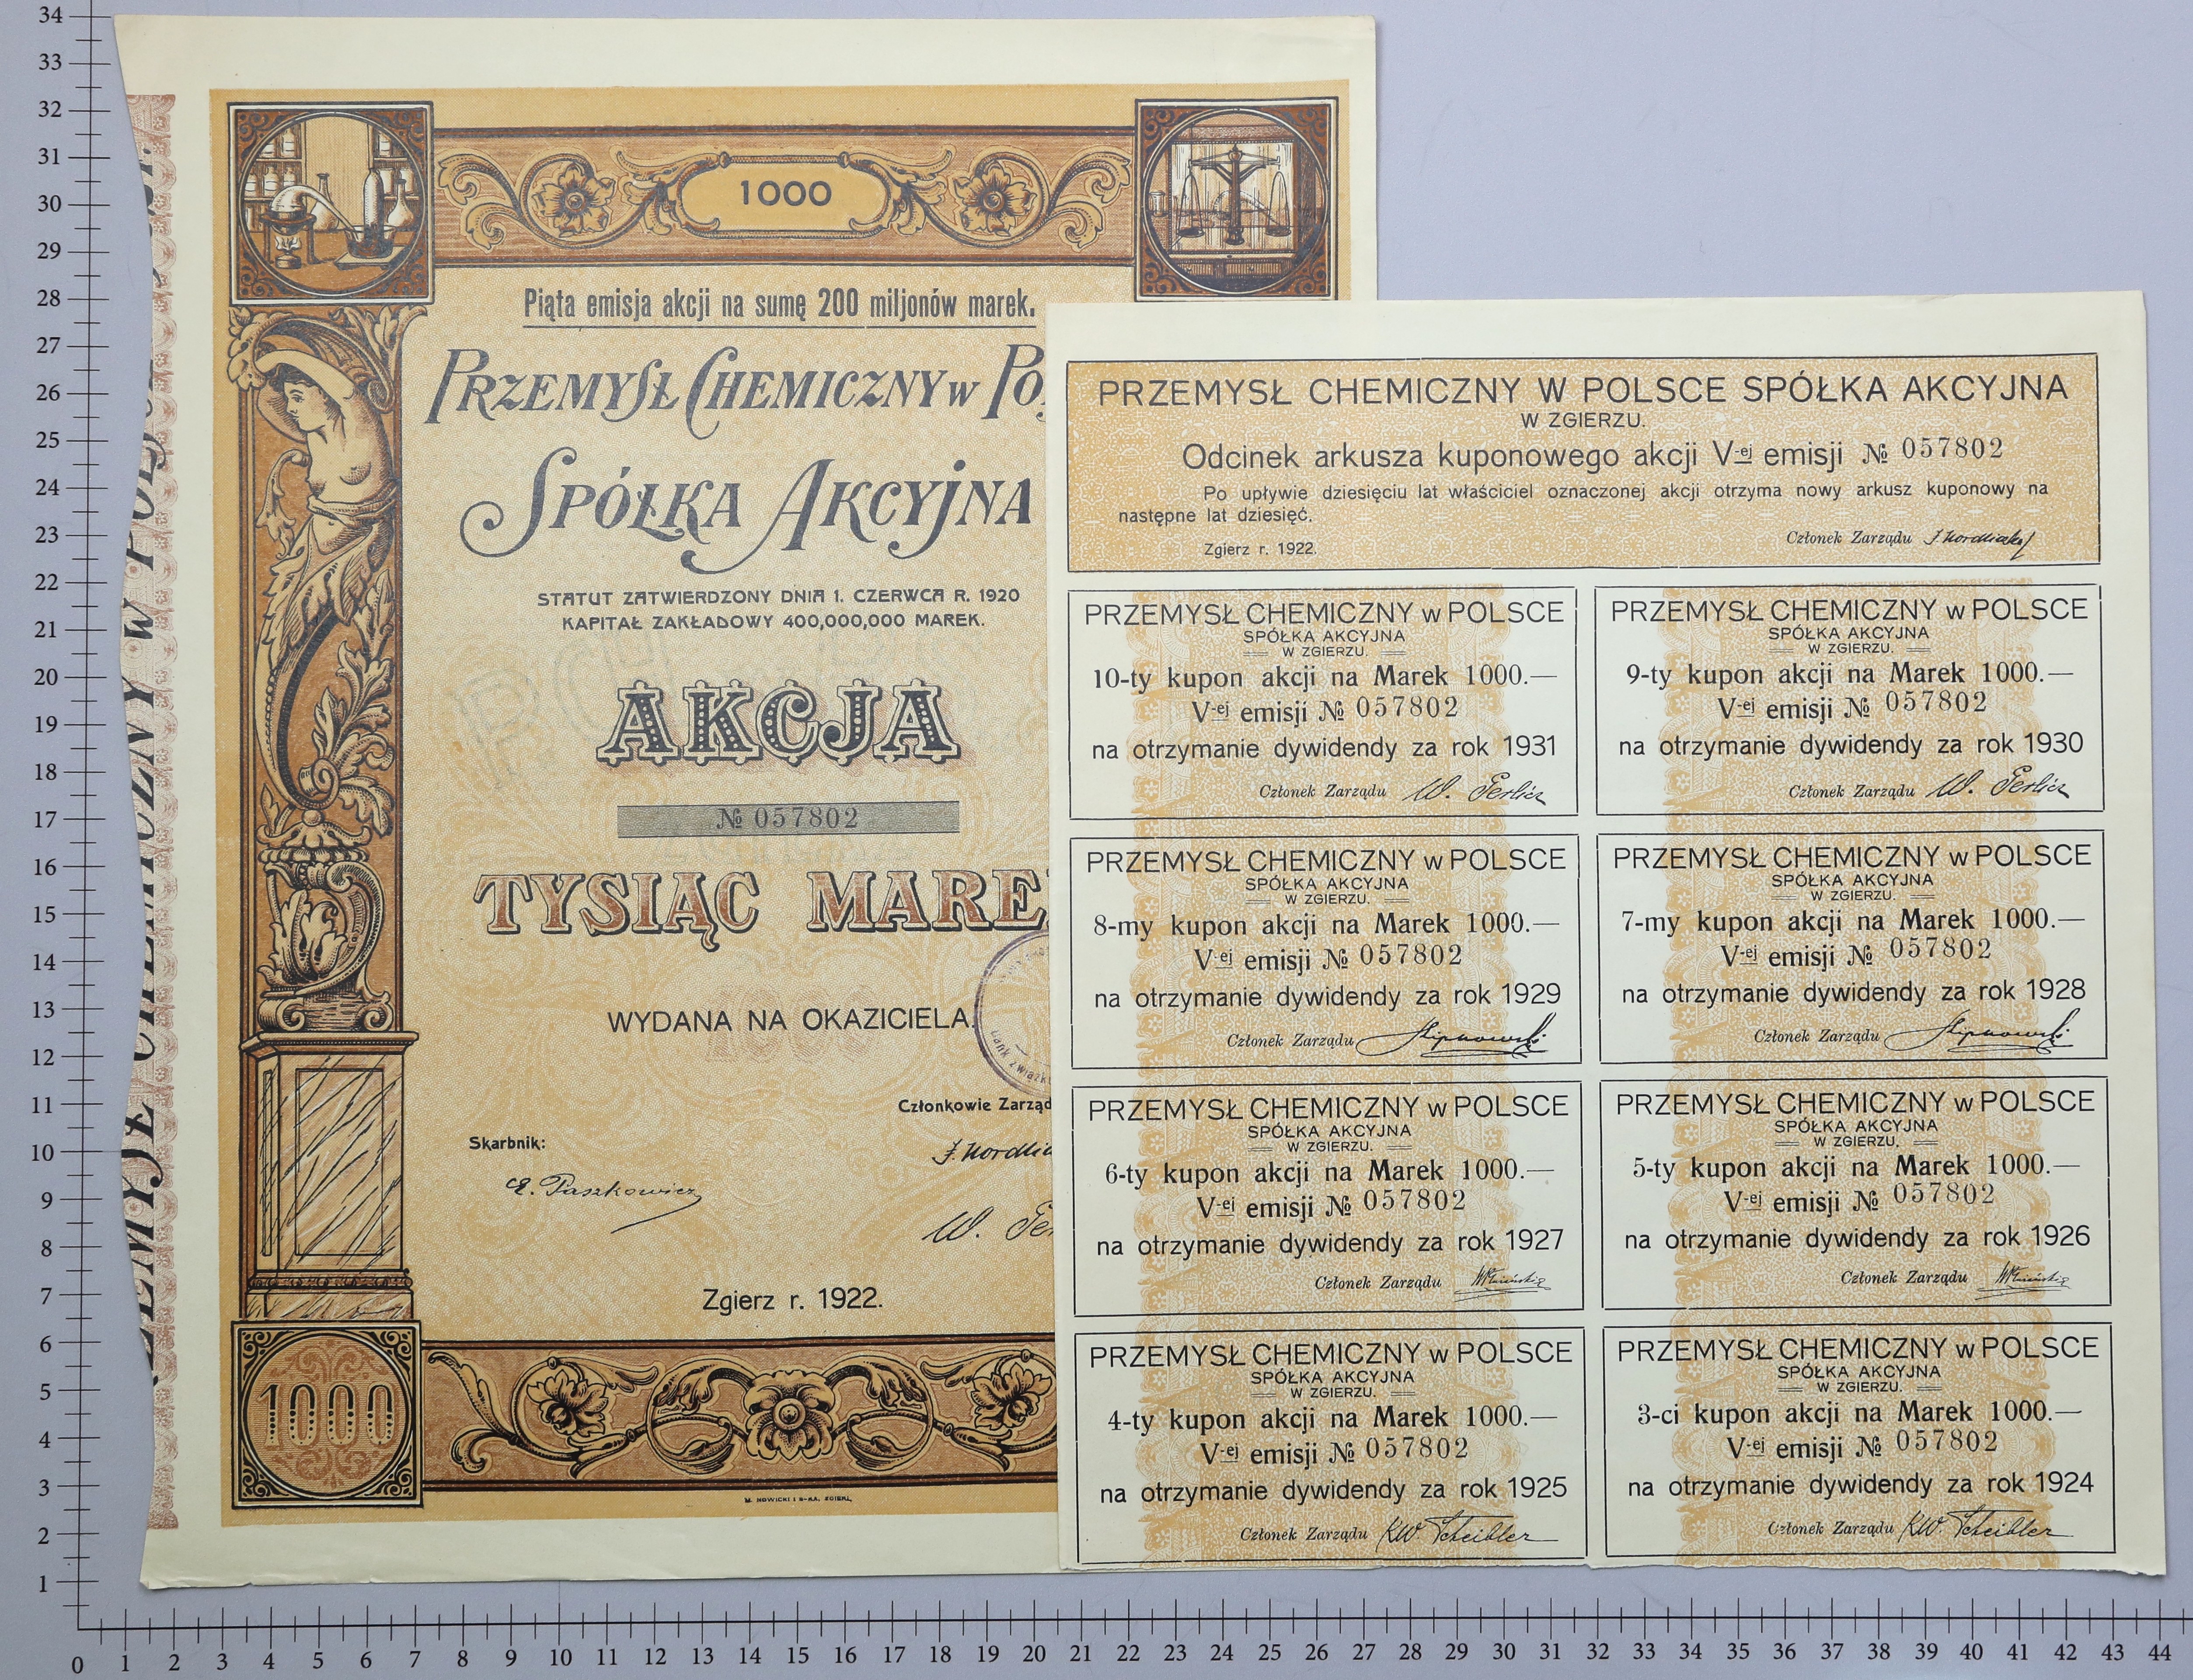 1000
Piąta emisja akcji na sumę 200 miljonów marek.
PRZEMYSŁ CHEMICZNY w
SPÓŁKA AKCYJNA
STATUT ZATWIERDZONY DNIA 1. CZERWCA R. 1920
KAPITAŁ ZAKŁADOWY 400,000,000 MAREK.
AKCJA
№ 057802
TYSIĄC MARE
WYDANA NA OKAZICIELA.
Członkowie Zarząd
Skarbnik:
Zgierz r. 1922.
1000
M. NOWICKI I S-KA, ZGIERZ,
PRZEMYSŁ CHEMICZNY W POLSCE SPÓŁKA AKCYJNA
W ZGIERZU.
Odcinek arkusza kuponowego akcji V-ej emisji № 057802
Po upływie dziesięciu lat właściciel oznaczonej akcji otrzyma nowy arkusz kuponowy na
następne lat dziesięć.
Zgierz r. 1922. Członek Zarządu
PRZEMYSŁ CHEMICZNY w POLSCE
SPÓŁKA AKCYJNA
W ZGIERZU.
10-ty kupon akcji na Marek 1000.—
V-ej emisji № 057802
na otrzymanie dywidendy za rok 1931
Członek Zarządu
PRZEMYSŁ CHEMICZNY w POLSCE
SPÓŁKA AKCYJNA
W ZGIERZU.
9-ty kupon akcji na Marek 1000.—
V-ej emisji № 057802
na otrzymanie dywidendy za rok 1930
Członek Zarządu
PRZEMYSŁ CHEMICZNY w POLSCE
SPÓŁKA AKCYJNA
W ZGIERZU.
8-my kupon akcji na Marek 1000.—
V-ej emisji № 057802
na otrzymanie dywidendy za rok 1929
Członek Zarządu
PRZEMYSŁ CHEMICZNY w POLSCE
SPÓŁKA AKCYJNA
W ZGIERZU.
7-my kupon akcji na Marek 1000.—
V-ej emisji № 057802
na otrzymanie dywidendy za rok 1928
Członek Zarządu
PRZEMYSŁ CHEMICZNY w POLSCE
SPÓŁKA AKCYJNA
W ZGIERZU.
6-ty kupon akcji na Marek 1000.—
V-ej emisji № 057802
na otrzymanie dywidendy za rok 1927
Członek Zarządu
PRZEMYSŁ CHEMICZNY w POLSCE
SPÓŁKA AKCYJNA
W ZGIERZU.
5-ty kupon akcji na Marek 1000.—
V-ej emisji № 057802
na otrzymanie dywidendy za rok 1926
Członek Zarządu
PRZEMYSŁ CHEMICZNY w POLSCE
SPÓŁKA AKCYJNA
W ZGIERZU.
4-ty kupon akcji na Marek 1000.—
V-ej emisji № 057802
na otrzymanie dywidendy za rok 1925
Członek Zarządu KW Scheibler
PRZEMYSŁ CHEMICZNY w POLSCE
SPÓŁKA AKCYJNA
W ZGIERZU.
3-ci kupon akcji na Marek 1000.—
V-ej emisji № 057802
na otrzymanie dywidendy za rok 1924
Członek Zarządu KW Scheibler
34
33
32
31
30
29
28
27
26
25
24
23
22
21
20
19
18
17
16
15
14
13
12
11
10
9
8
7
6
5
4
3
2
1
0 1 2 3 4 5 6 7 8 9 10 11 12 13 14 15 16 17 18 19 20 21 22 23 24 25 26 27 28 29 30 31 32 33 34 35 36 37 38 39 40 41 42 43 44